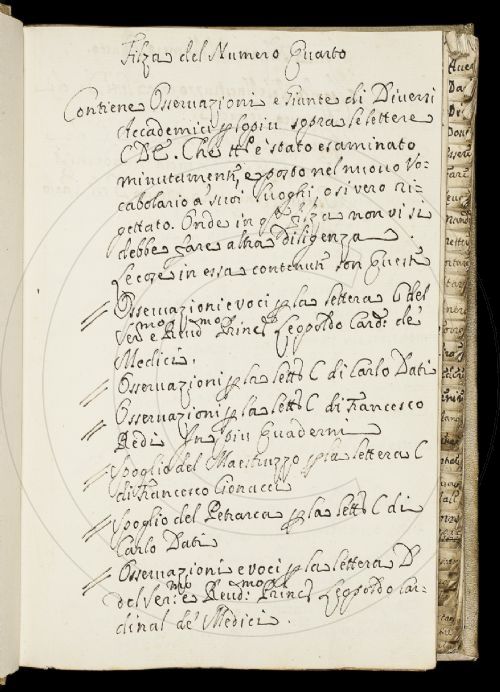 Filza del Numero Quarto
Contiene Osservazioni e Giunte di Diversi
Accademici p lo piu sopra le lettere
C D E. Che tt.o è stato esaminato
minutament.e, e posto nel nuovo Vo-
cabolario a' suoi luoghi, o si vero ri-
gettato. Onde in q.ta Filza non vi si
debbe fare altra diligenza.
Le cose in essa contenute son queste
Osservazioni e voci p la lettera C del
Ser.mo e Reud.mo Princ.e Leopoldo Card. de'
Medici.
Osservazioni p la lett.a C di Carlo Dati
Osservazioni p la lett.a C di Francesco
Redi In piu Quaderni
Spoglio del Maestruzzo p la lettera C
di Francesco Cionacci
Spoglio del Petrarca p la lett.a C di
Carlo Dati
Osservazioni e voci p la lettera D
del Ser.mo e Reud.mo Princ.e Leopoldo Car-
dinal de' Medici.